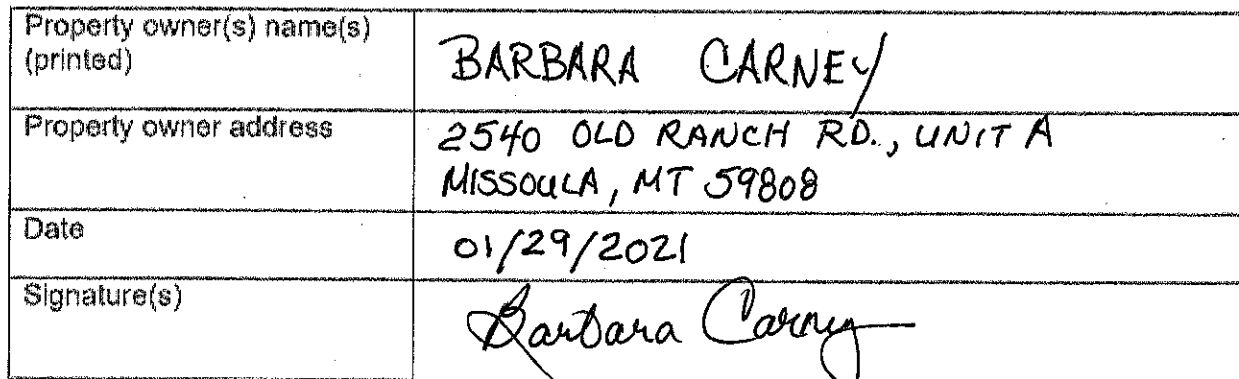 Property owner(s) name(s)
(printed)
BARBARA CARNEY
Property owner address
2540 OLD RANCH RD., UNIT A
MISSOULA, MT 59808
Date
01/29/2021
Signature(s)
Barbara Carney